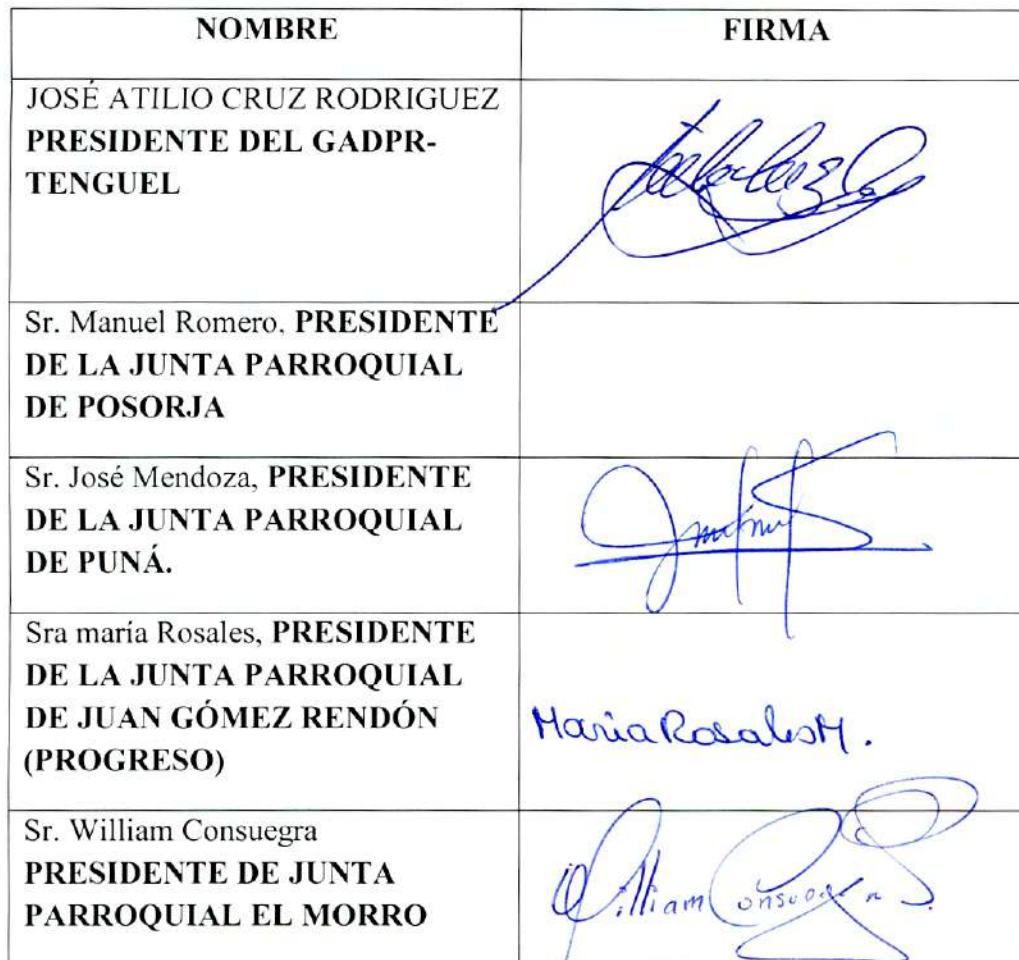 NOMBRE
FIRMA
JOSÉ ATILIO CRUZ RODRIGUEZ
PRESIDENTE DEL GADPR-
TENGUEL
Sr. Manuel Romero, PRESIDENTE
DE LA JUNTA PARROQUIAL
DE POSORJA
Sr. José Mendoza, PRESIDENTE
DE LA JUNTA PARROQUIAL
DE PUNÁ.
Sra maría Rosales, PRESIDENTE
DE LA JUNTA PARROQUIAL
DE JUAN GÓMEZ RENDÓN
(PROGRESO)
Maria Rosales M.
Sr. William Consuegra
PRESIDENTE DE JUNTA
PARROQUIAL EL MORRO
William Consuegra S.